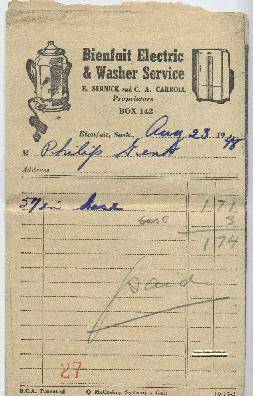 Bienfait Electric
& Washer Service
E. SERNICK and C. A. CARROLL
Proprietors
BOX 142
Bienfait, Sask., Aug 23 1948
M Philip
Address
57 in hose 1 71
3
1 74
Paid
27